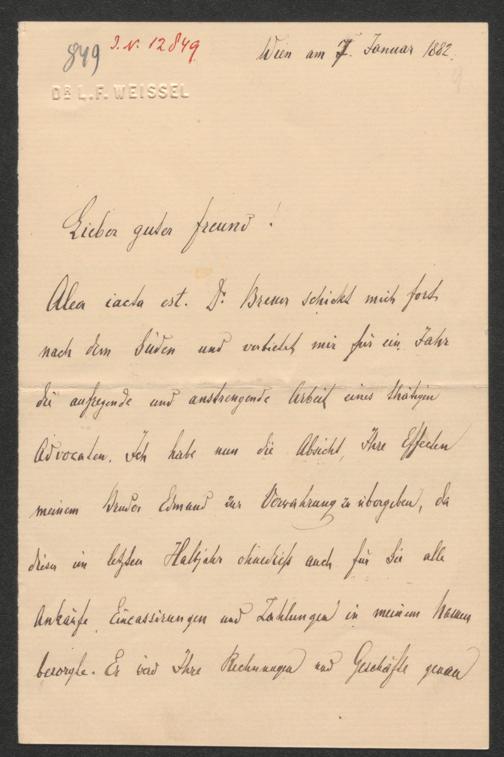 849 I.N. 12849
Wien am 7. Januar 1882.
DR. L. F. WEISSEL
Lieber guter Freund!
Alea iacta est. Dr Breuer schickt mich fort
nach dem Süden und verbietet mir für ein Jahr
die aufregende und anstrengende Arbeit eines thätigen
Advocaten. Ich habe nun die Absicht, Ihre Effecten
meinem Bruder Edmund zur Verwahrung zu übergeben, da
dieser im letzten Halbjahr ohnedieß auch für Sie alle
Ankäufe, Einkassirungen und Zahlungen in meinem Namen
besorgte. Er wird Ihre Rechnungen und Geschäfte genau